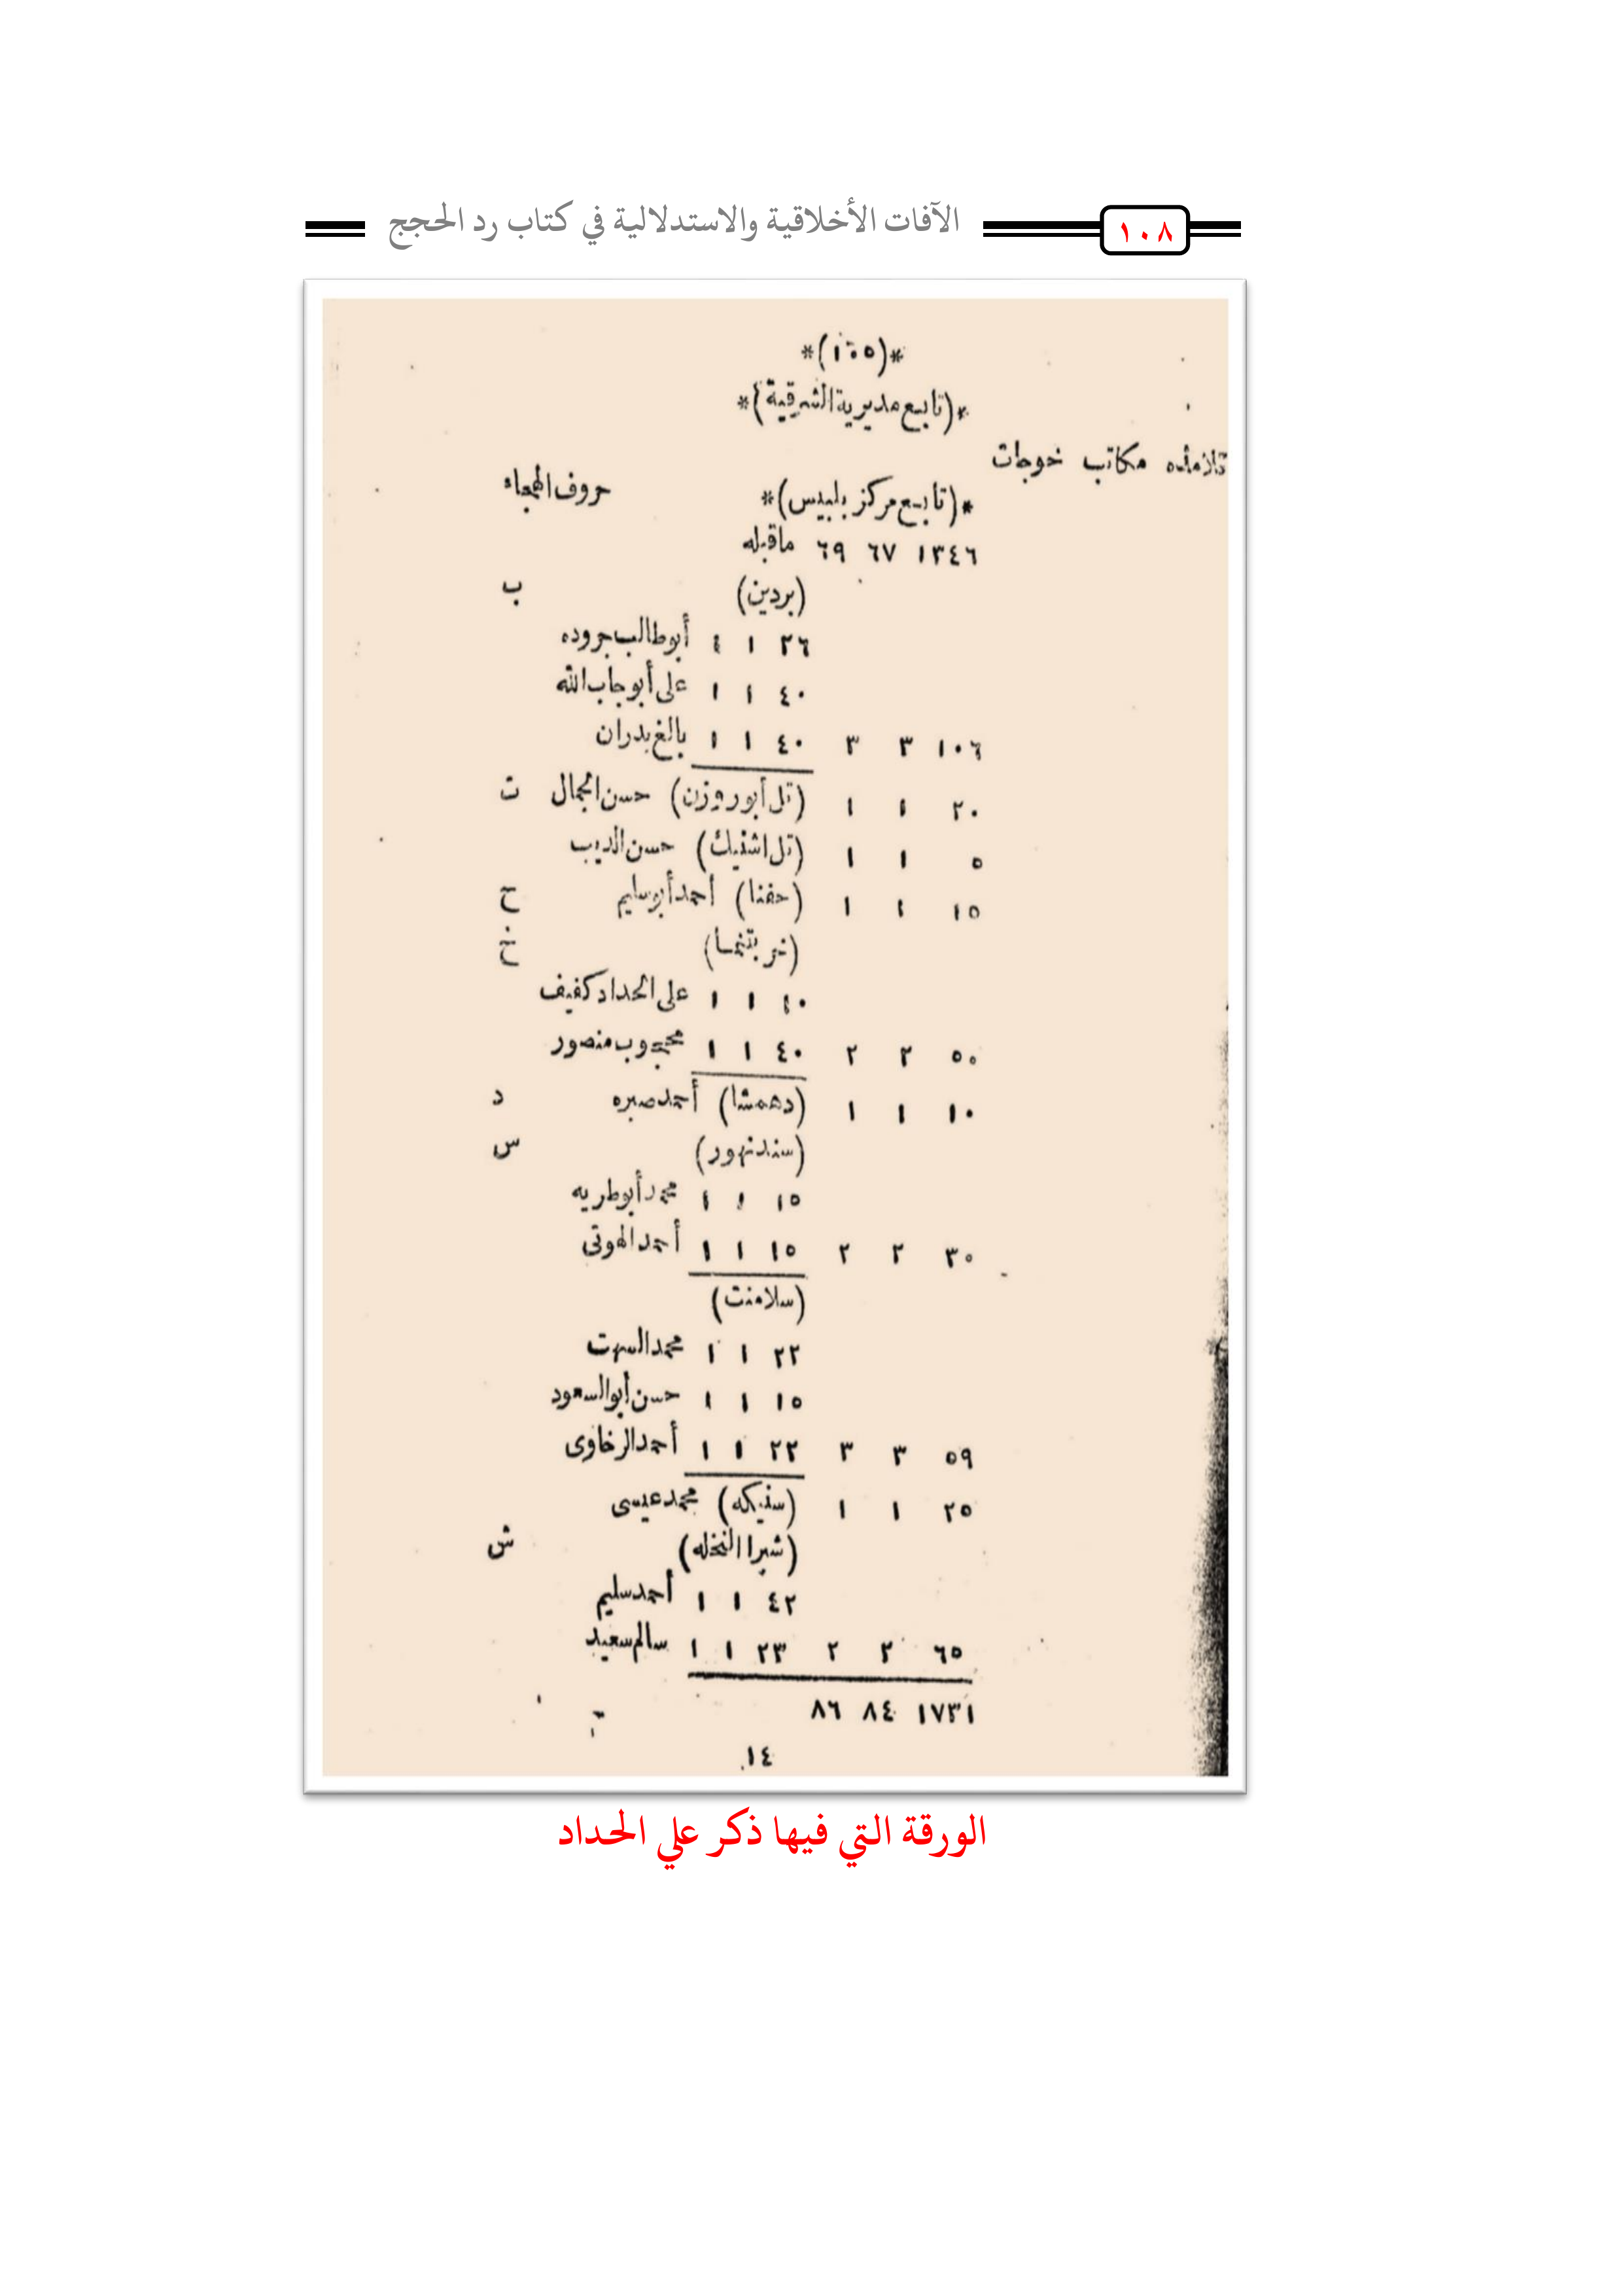 ١٠٨ الآفات الأخلاقية والاستدلالية في كتاب رد الحجج
*(١٠٥)*
*(تابع مديرية الشرقية)*
تلامذه مكاتب خوجات
*(تابع مركز بلبيس)* حروف الهجاء
١٣٤٦ ٦٧ ٦٩ ماقبله
(بردين) ب
٢٦ ١ ١ أبوطالب جروده
٤٠ ١ ١ على أبوجاب الله
١٠٦ ٣ ٣ ٤٠ ١ ١ بالغ بدران
٢٠ ١ ١ (تل أبوروزن) حسن الجمال ت
٥ ١ ١ (تل اشنيك) حسن الديب
١٥ ١ ١ (حفنا) أحمد أبوسليم ح
(خربتنما) خ
١٠ ١ ١ على الحداد كفيف
٥٠ ٢ ٢ ٤٠ ١ ١ محجوب منصور
١٠ ١ ١ (دهمشا) أحمد صبره د
(سندنهور) س
١٥ ١ ١ محمد أبوطريه
٣٠ ٢ ٢ ١٥ ١ ١ أحمد الهوتى
(سلامنت)
٢٢ ١ ١ محمد السهت
١٥ ١ ١ حسن أبوالسعود
٥٩ ٣ ٣ ٢٢ ١ ١ أحمد الرخاوى
٢٥ ١ ١ (سنيكه) محمد عيسى
(شبرا النخله) ش
٤٢ ١ ١ أحمد سليم
٦٥ ٢ ٢ ٢٣ ١ ١ سالم سعيد
١٧٣١ ٨٤ ٨٦
١٤
الورقة التي فيها ذكر علي الحداد